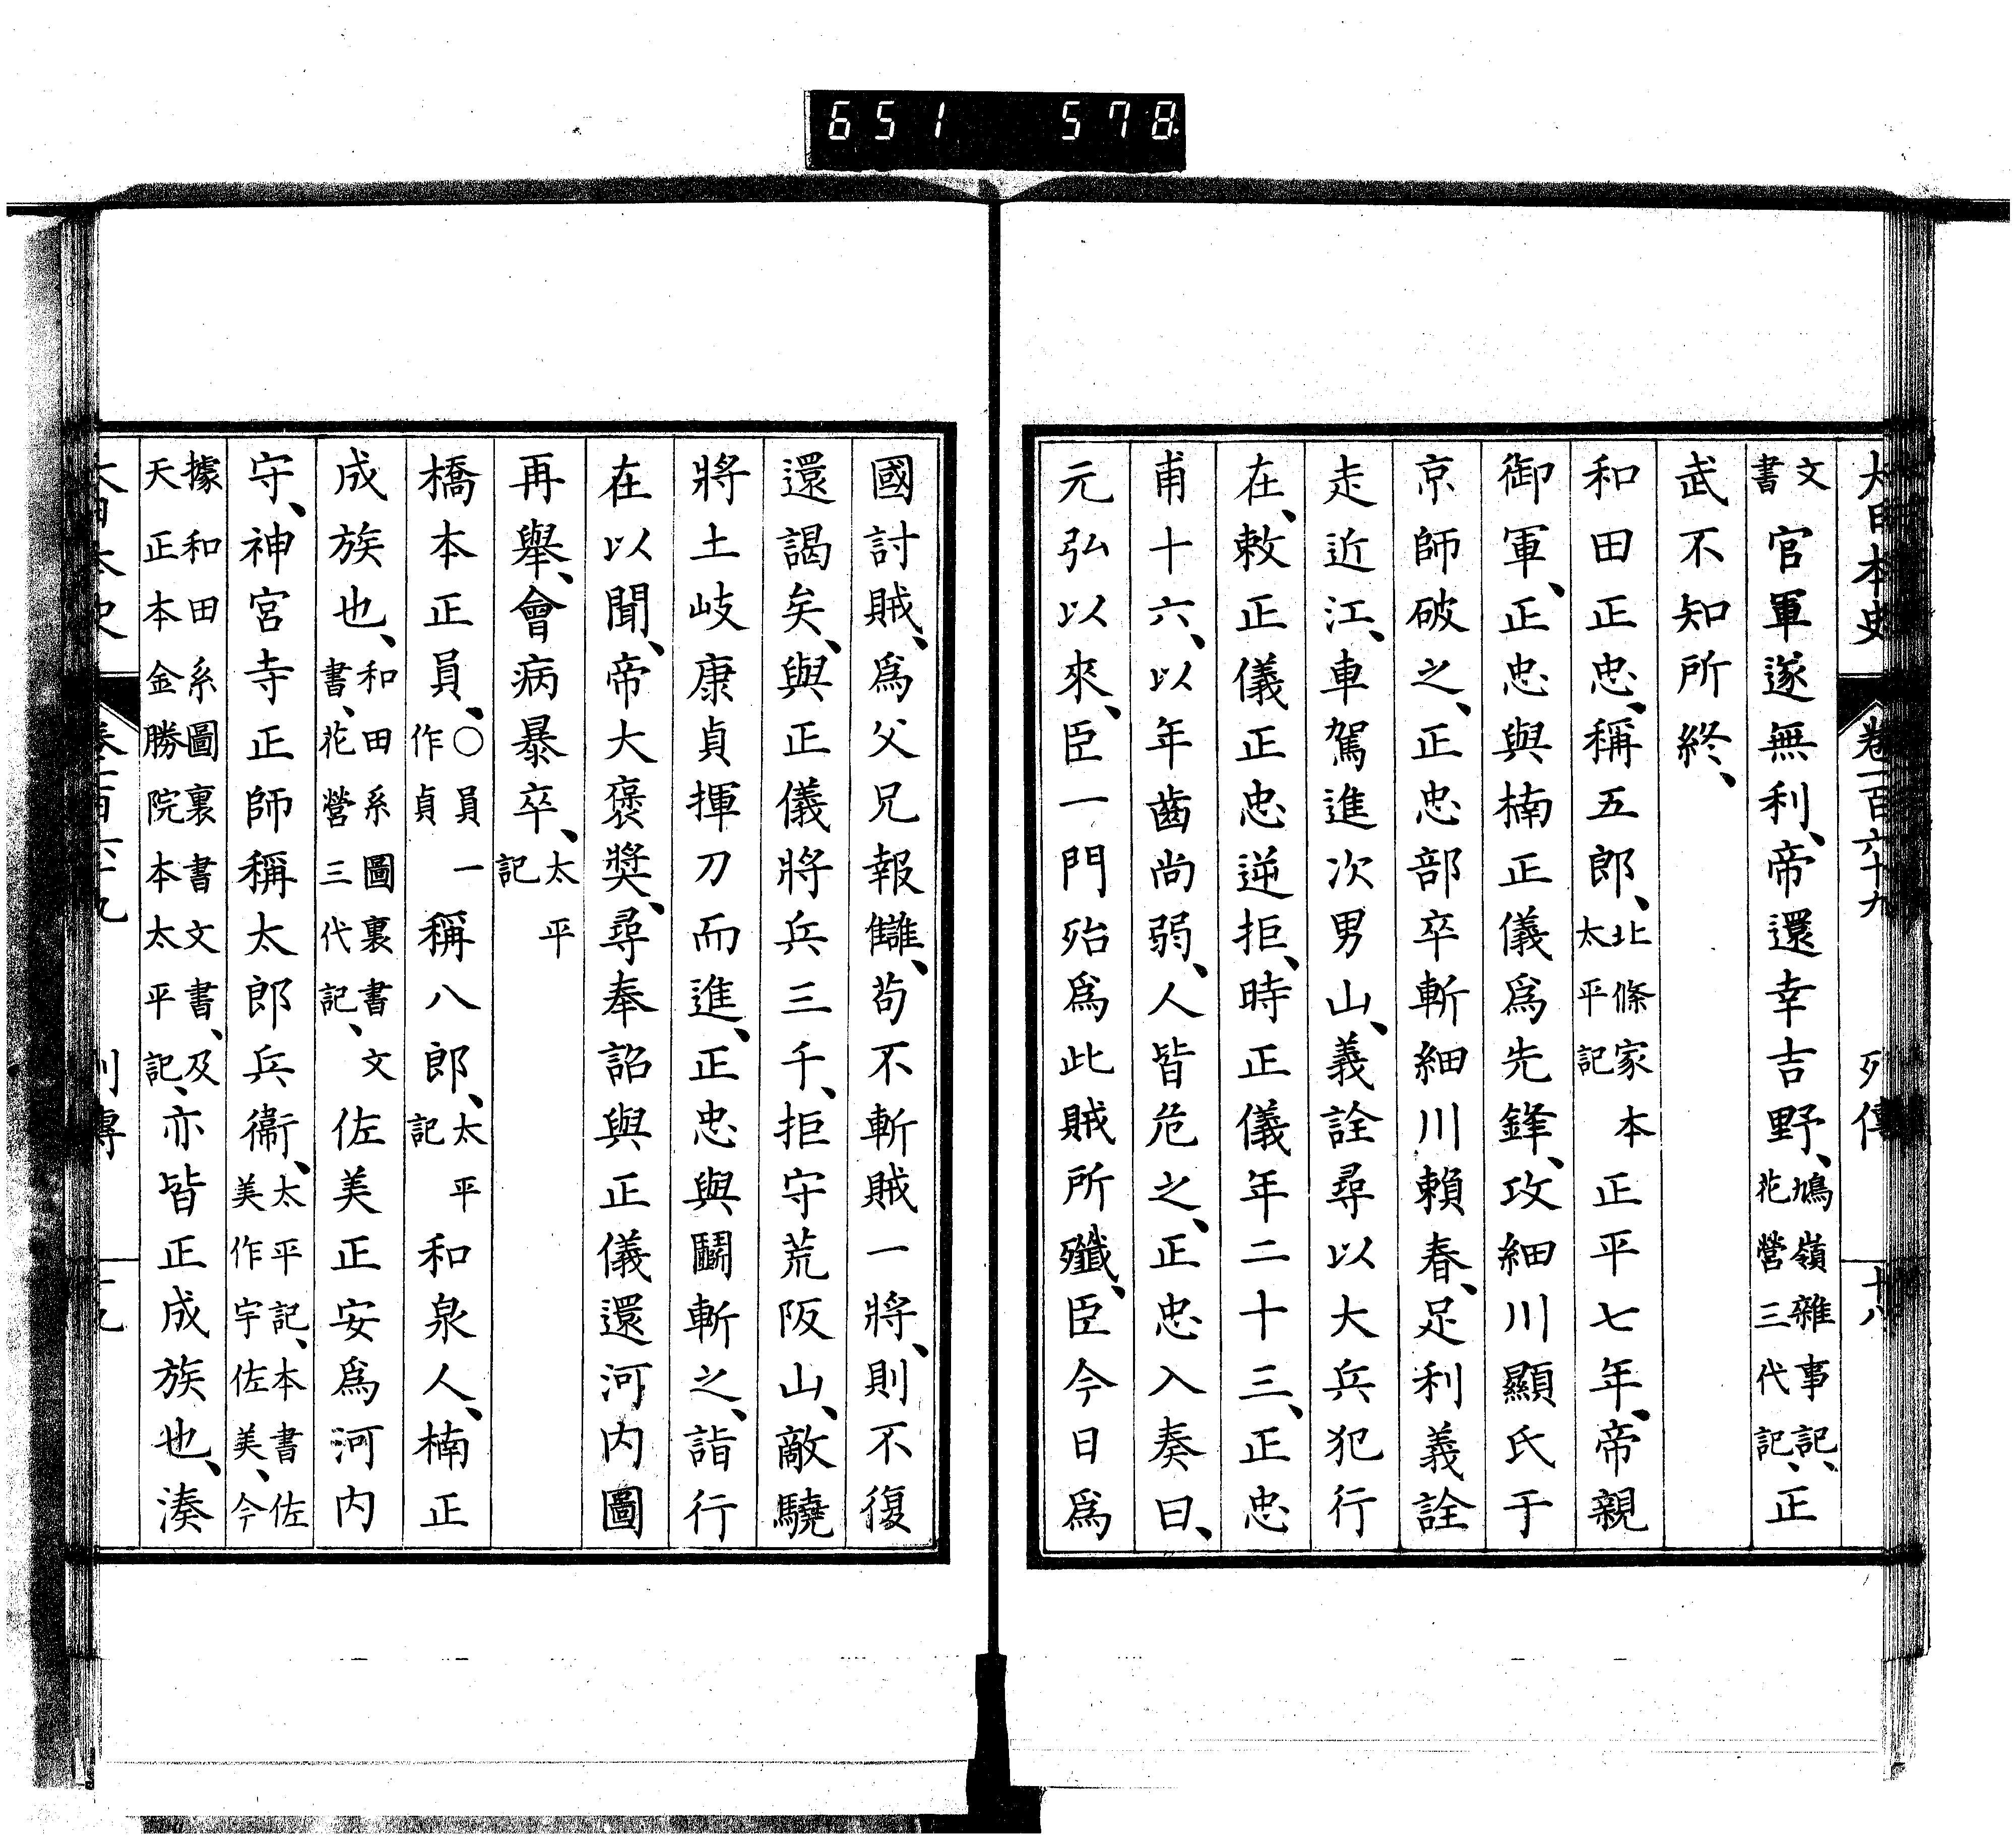 651 578
大日本史 卷一百六十九 列傳 十八
文書 官軍遂無利、帝還幸吉野、鳩嶺雜事記、花營三代記、正
武不知所終、
和田正忠、稱五郎、北條家本太平記 正平七年、帝親
御軍、正忠與楠正儀爲先鋒、攻細川顯氏于
京師破之、正忠部卒斬細川賴春、足利義詮
走近江、車駕進次男山、義詮尋以大兵犯行
在、敕正儀正忠逆拒、時正儀年二十三、正忠
甫十六、以年齒尚弱、人皆危之、正忠入奏曰、
元弘以來、臣一門殆爲此賊所殲、臣今日爲
國討賊、爲父兄報讎、苟不斬賊一將、則不復
還謁矣、與正儀將兵三千、拒守荒阪山、敵驍
將土岐康貞揮刀而進、正忠與鬭斬之、詣行
在以聞、帝大褒獎、尋奉詔與正儀還河內圖
再舉、會病暴卒、太平記
橋本正員、○員一作貞 稱八郎、太平記 和泉人、楠正
成族也、和田系圖裏書文書、花營三代記、 佐美正安爲河內
守、神宮寺正師稱太郎兵衞、太平記、本書佐美作宇佐美、今
據和田系圖裏書文書、及天正本金勝院本太平記、 亦皆正成族也、湊
大日本史 卷一百六十九 列傳 十九